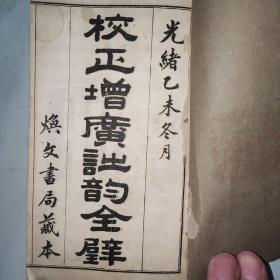 光緒乙未冬月
校正增廣詩韵全璧
煥文書局藏本